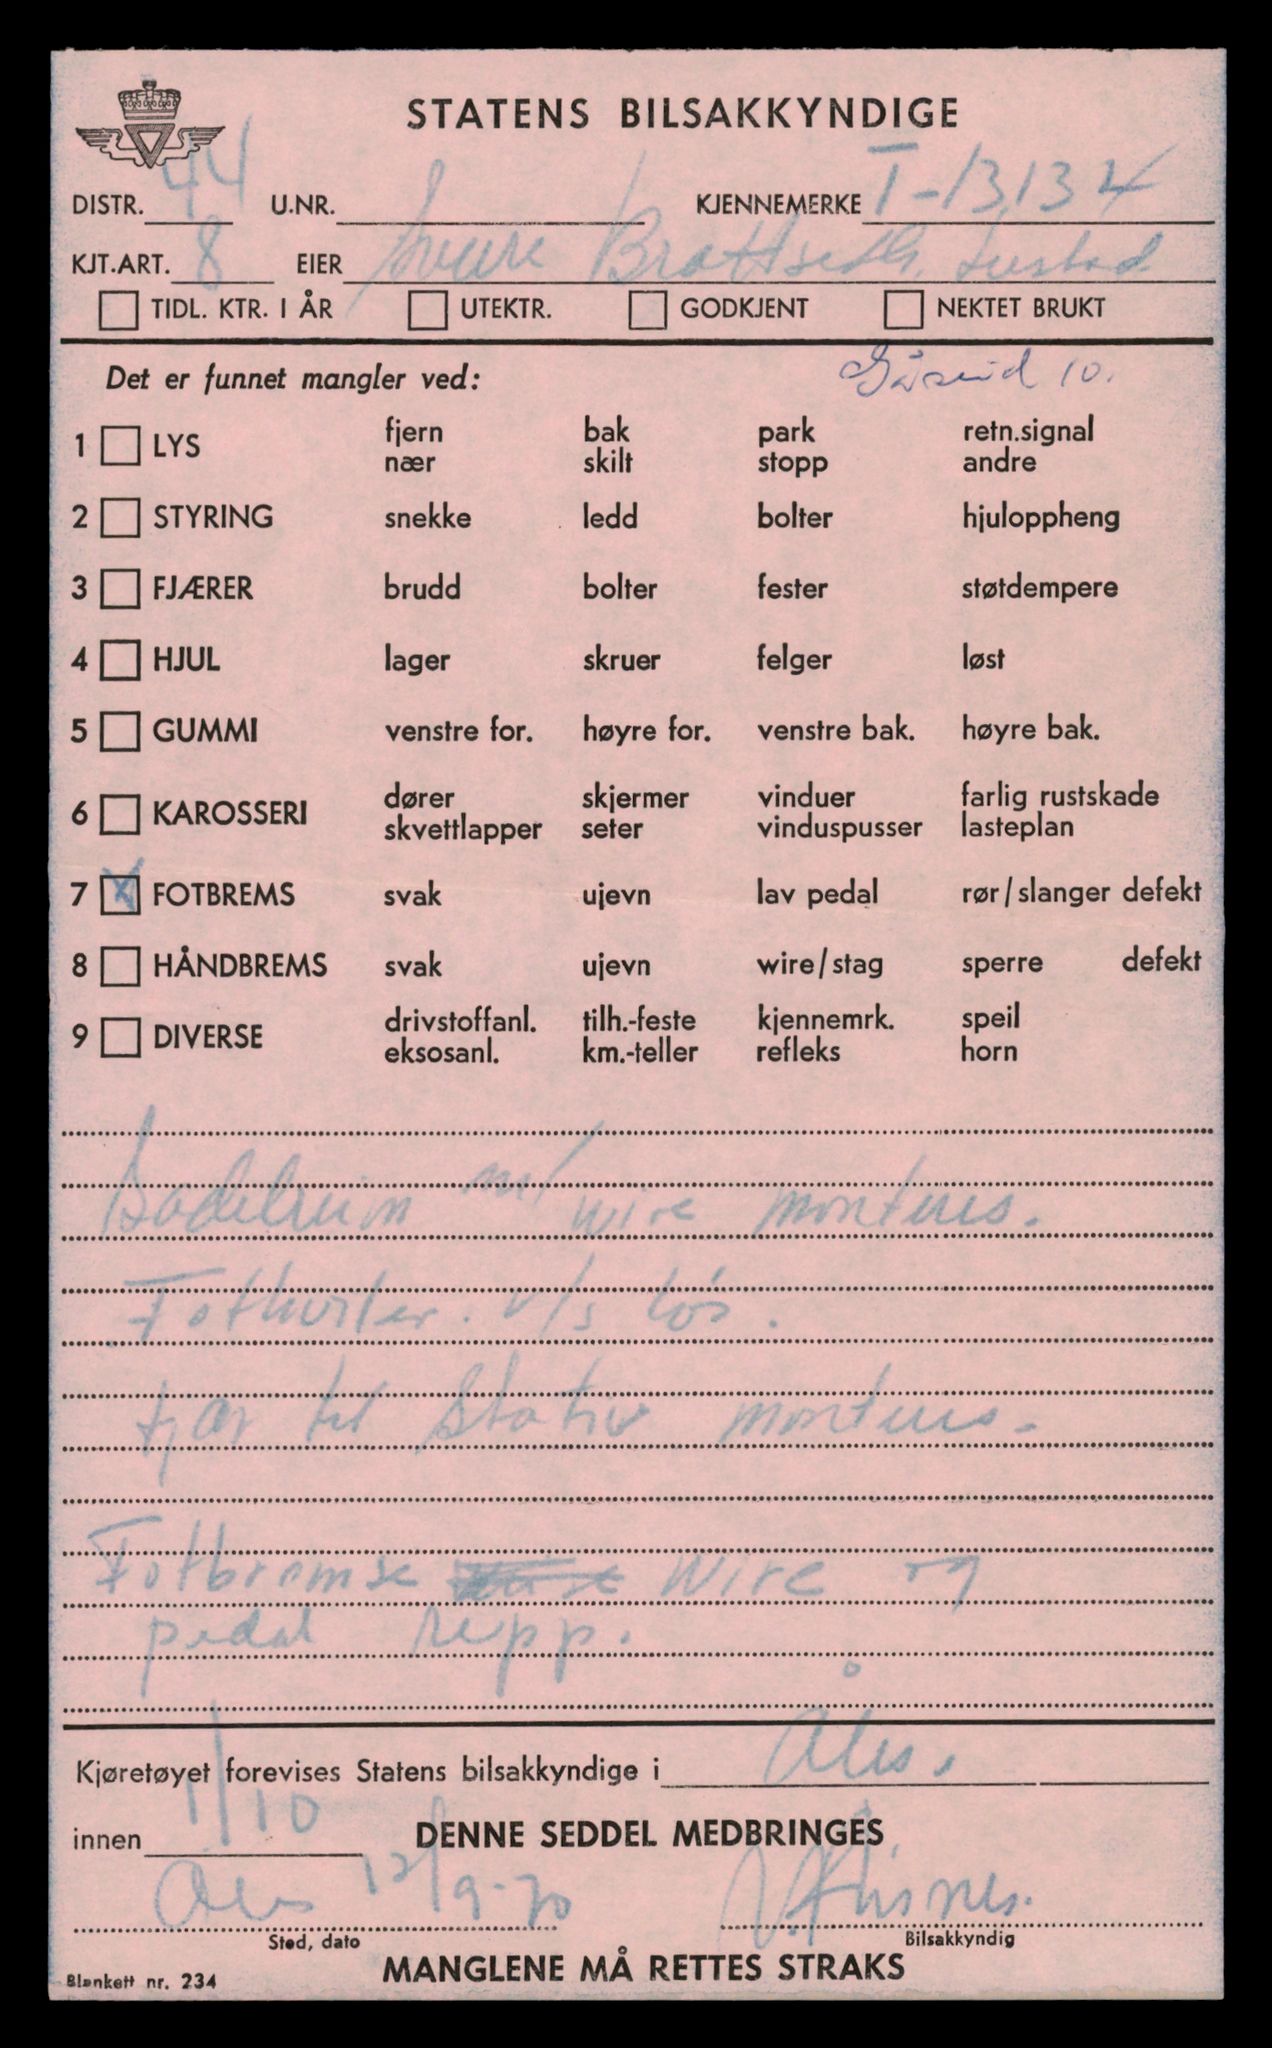 STATENS BILSAKKYNDIGE
DISTR. 44 U.NR. KJENNEMERKE T-13134
KJT.ART. 8 EIER Sverre Brattseth.
TIDL. KTR. I ÅR UTEKTR. GODKJENT NEKTET BRUKT
Det er funnet mangler ved: 10.
1 LYS fjern bak park retn.signal
nær skilt stopp andre
2 STYRING snekke ledd bolter hjuloppheng
3 FJÆRER brudd bolter fester støtdempere
4 HJUL lager skruer felger løst
5 GUMMI venstre for. høyre for. venstre bak. høyre bak.
6 KAROSSERI dører skjermer vinduer farlig rustskade
skvettlapper seter vinduspusser lasteplan
7 X FOTBREMS svak ujevn lav pedal rør/slanger defekt
8 HÅNDBREMS svak ujevn wire/stag sperre defekt
9 DIVERSE drivstoffanl. tilh.-feste kjennemrk. speil
eksosanl. km.-teller refleks horn
m/ wire monteres.
Fothviler. v/s løs.
Fjær til stativ monteres.
Fotbremse wire og
pedal repp.
Kjøretøyet forevises Statens bilsakkyndige i Åles.
innen 1/10 DENNE SEDDEL MEDBRINGES
Åles 12/9-70
Sted, dato Bilsakkyndig
Blankett nr. 234 MANGLENE MÅ RETTES STRAKS